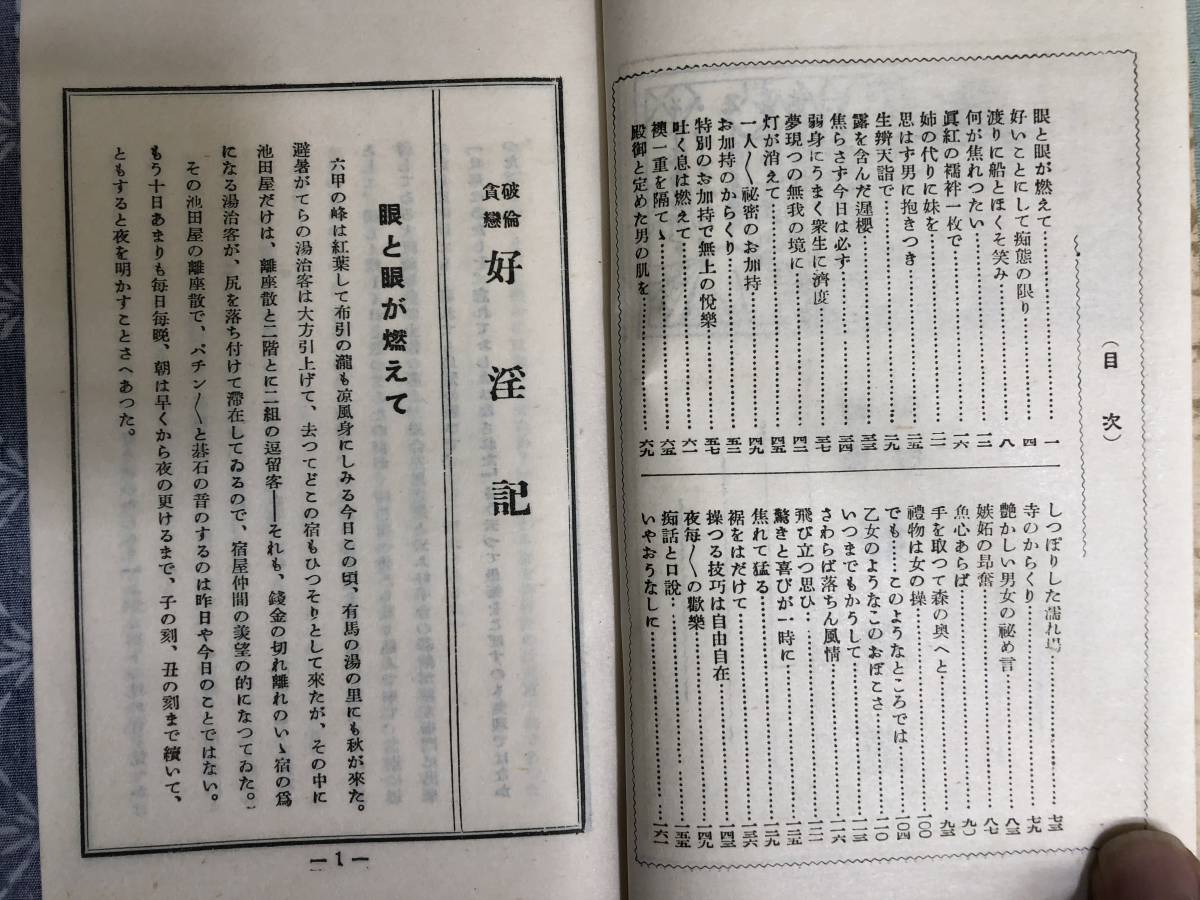 （目　次）
眼と眼が燃えて……………一
好いことにして痴態の限り……………四
渡りに船とほくそ笑み……………八
何が焦れつたい……………一二
眞紅の襦袢一枚で……………一六
姉の代りに妹を……………二一
思はず男に抱きつき……………二五
生辨天詣で……………二九
露を含んだ遅櫻……………三三
焦らさず今日は必ず……………三四
弱身にうまく衆生に濟度……………三七
夢現つの無我の境に……………四二
灯が消えて……………四五
一人〱祕密のお加持……………四九
お加持のからくり……………五二
特別のお加持で無上の悅樂……………五七
吐く息は燃えて……………六一
襖一重を隔てゝ……………六五
殿御と定めた男の肌を……………六九
しつぽりした濡れ場……………七三
寺のからくり……………七九
艶かしい男女の祕め言……………八三
嫉妬の昂奮……………八七
魚心あらば……………九〇
手を取つて森の奧へと……………九三
禮物は女の操……………一〇〇
でも……このようなところでは……………一〇四
乙女のようなこのおぼこさ……………一一〇
いつまでもかうして……………一一三
さわらば落ちん風情……………一一六
飛び立つ思ひ……………一二一
驚きと喜びが一時に……………一二五
焦れて猛る……………一二九
裾をはだけて……………一三六
操つる技巧は自由自在……………一四三
夜每〱の歡樂……………一四九
痴話と口說……………一五五
いやおうなしに……………一六一
破倫
貪戀
好淫記
眼と眼が燃えて
六甲の峰は紅葉して布引の瀧も凉風身にしみる今日この頃、有馬の湯の里にも秋が來た。
避暑がてらの湯治客は大方引上げて、去つてどこの宿もひつそりとして來たが、その中に
池田屋だけは、離座敷と二階とに二組の逗留客――それも、錢金の切れ離れのいゝ宿の爲
になる湯治客が、尻を落ち付けて滯在してゐるので、宿屋仲間の羨望の的になつてゐた。
その池田屋の離座敷で、パチン〱と碁石の音のするのは昨日や今日のことではない。
もう十日あまりも每日每晩、朝は早くから夜の更けるまで、子の刻、丑の刻まで續いて、
ともすると夜を明かすことさへあつた。
―1―